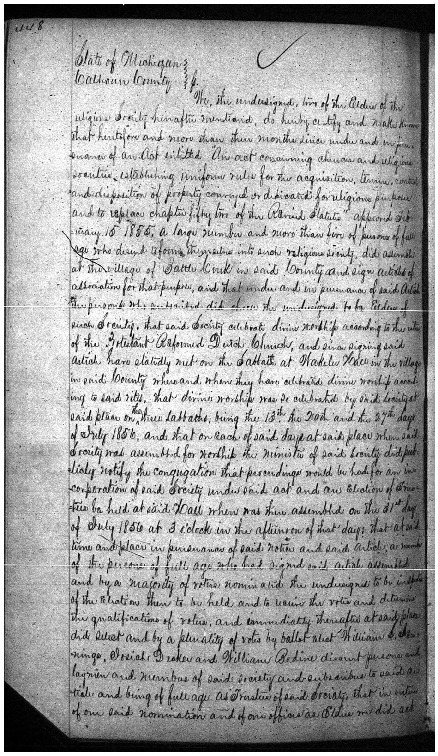 State of Michigan
Calhoun County
We, the undersigned, two of the Elders of the
religious Society hereafter mentioned, do hereby certify and make known
that heretofore and more than three months since under and in pur-
suance of an Act entitled An act concerning churches and religious
societies, establishing uniform rules for the acquisition, tenure, control
and disposition of property conveyed or dedicated for religious purposes
and to replace chapter fifty two of the Revised Statutes approved Feb-
ruary 13 1855, a large number and more than five of persons of full
age who desired to form themselves into such religious society, did assemble
at the village of Battle Creek in said County and sign articles of
association for that purpose, and that under and in pursuance of said Article
the persons who subscribed did the undersigned to be Elders of
such Society, that said Society celebrate divine worship according to the rites
of the Protestant Reformed Dutch Church, and since signing said
Article have statedly met on the Sabbath at Wakelee Hall in the village
in said County where and where they have celebrated divine worship accord-
ing to said rites, that divine worship was so celebrated by said Society at
said place on three Sabbaths, being the 13th the 20th and the 27th days
of July 1856, and that on each of said days at said place when said
Society was assembled for worship the minister of said society did pub-
licly notify the congregation that proceedings would be had for an in-
corporation of said Society under said act and an Election of Trus-
tees be held at said Hall where was then assembled on the 31st day
of July 1856 at 3 o'clock in the afternoon of that day; that at said
time and place in pursuance of said notice and said Article, a number
of the persons of full age who had signed said article assembled
and by a majority of votes nominated the undersigned to be inspectors
of the Election then to be held and to receive the votes and determine
the qualifications of voters, and immediately thereafter at said place
did select and by a plurality of votes by ballot elect William
Josiah and William Bodine discreet persons and
laymen and members of said society and subscribers to said ar-
ticle and being of full age as Trustees of said Society, that in virtue
of our said nomination and of our offices as Elders we did act